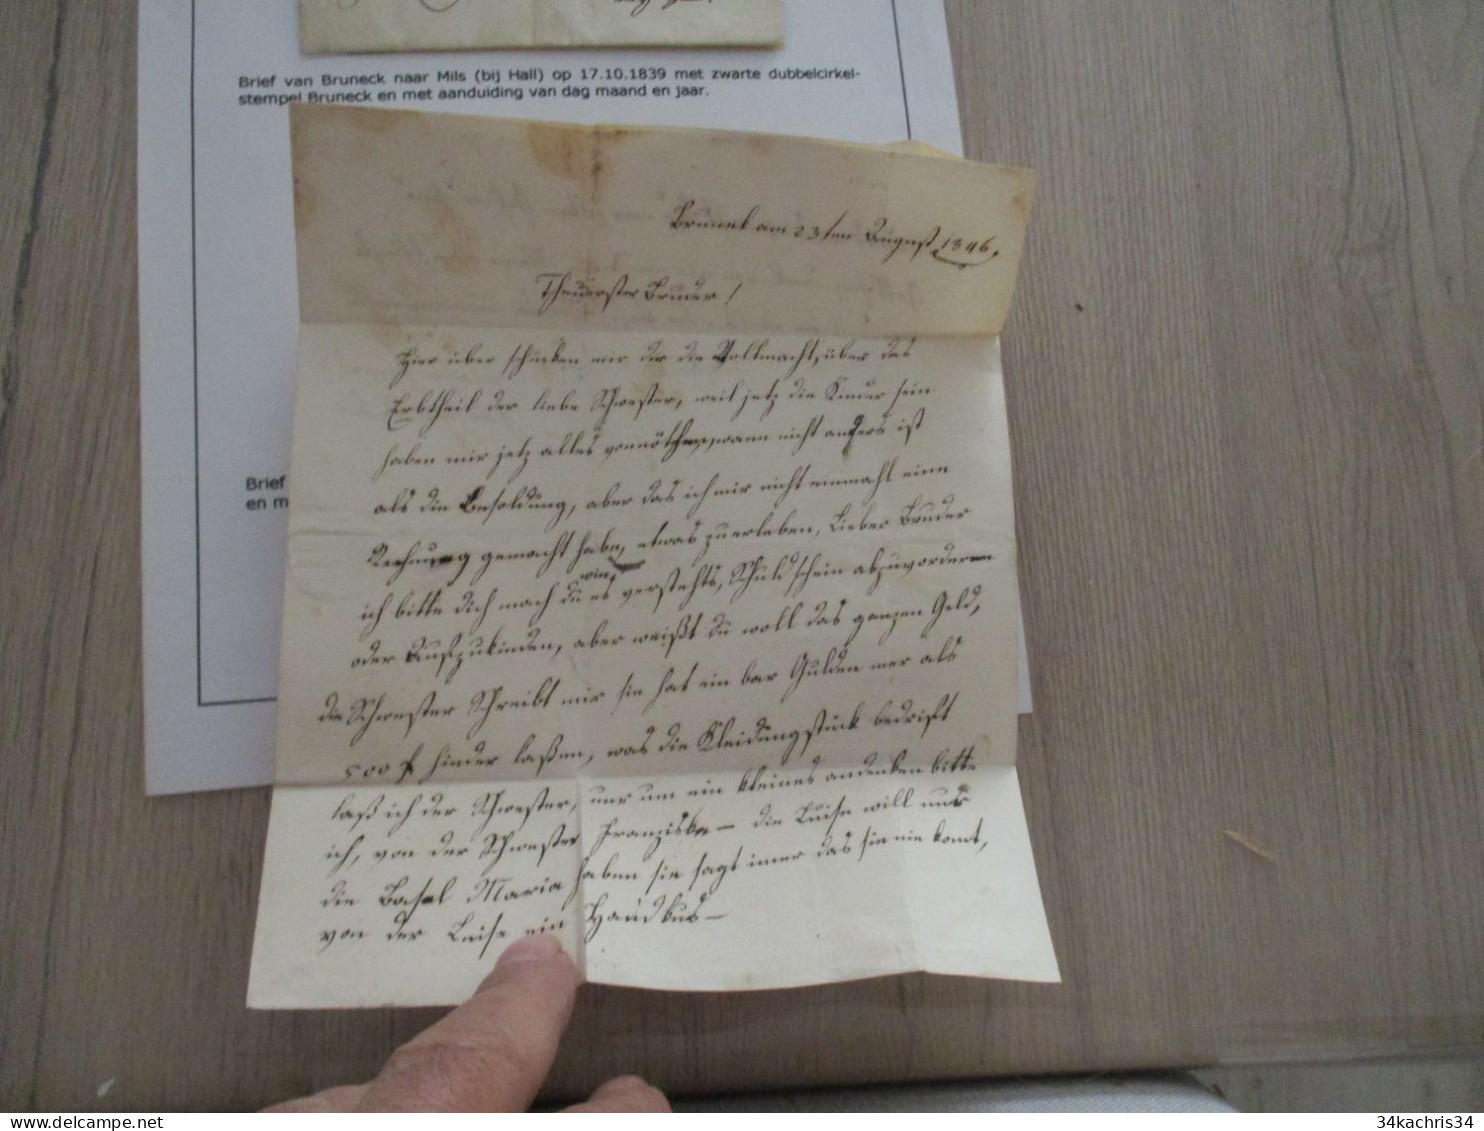 Brief van Bruneck naar Mils (bij Hall) op 17.10.1839 met zwarte dubbelcirkel-
stempel Bruneck en met aanduiding van dag maand en jaar.
Brunek am 23ten August 1846.
Theuerster Bruder!
Hier über schicken wir dir die Vollmacht, über das
Erbtheil der liebe Schwester, weil jetz die Kinder sein
haben wir jetz alles vonnöthen, wann nicht anders ist
als die Besoldung, aber das ich mir nicht einmahl eine
Rechnung gemacht habe, etwas zu erleben, Lieber Bruder
ich bitte dich mach du es wie, verstehts, Schuldschein abzuvorderen
oder Aufzukinden, aber weißt du woll das ganzen Geld,
die Schwester Schreibt mir sie hat ein bar Gulden mer als
500 f hinder laßen, was die Kleidungstück bedrift
laß ich der Schwester, nur um ein kleines andenken bitte
ich, von der Schwester Franziska — die Luise will nur
die Basel Maria haben sie sagt imer das sie nie komt,
von der Luise ein Handkus —
Brief
en m
34kachris34
delcampe.net